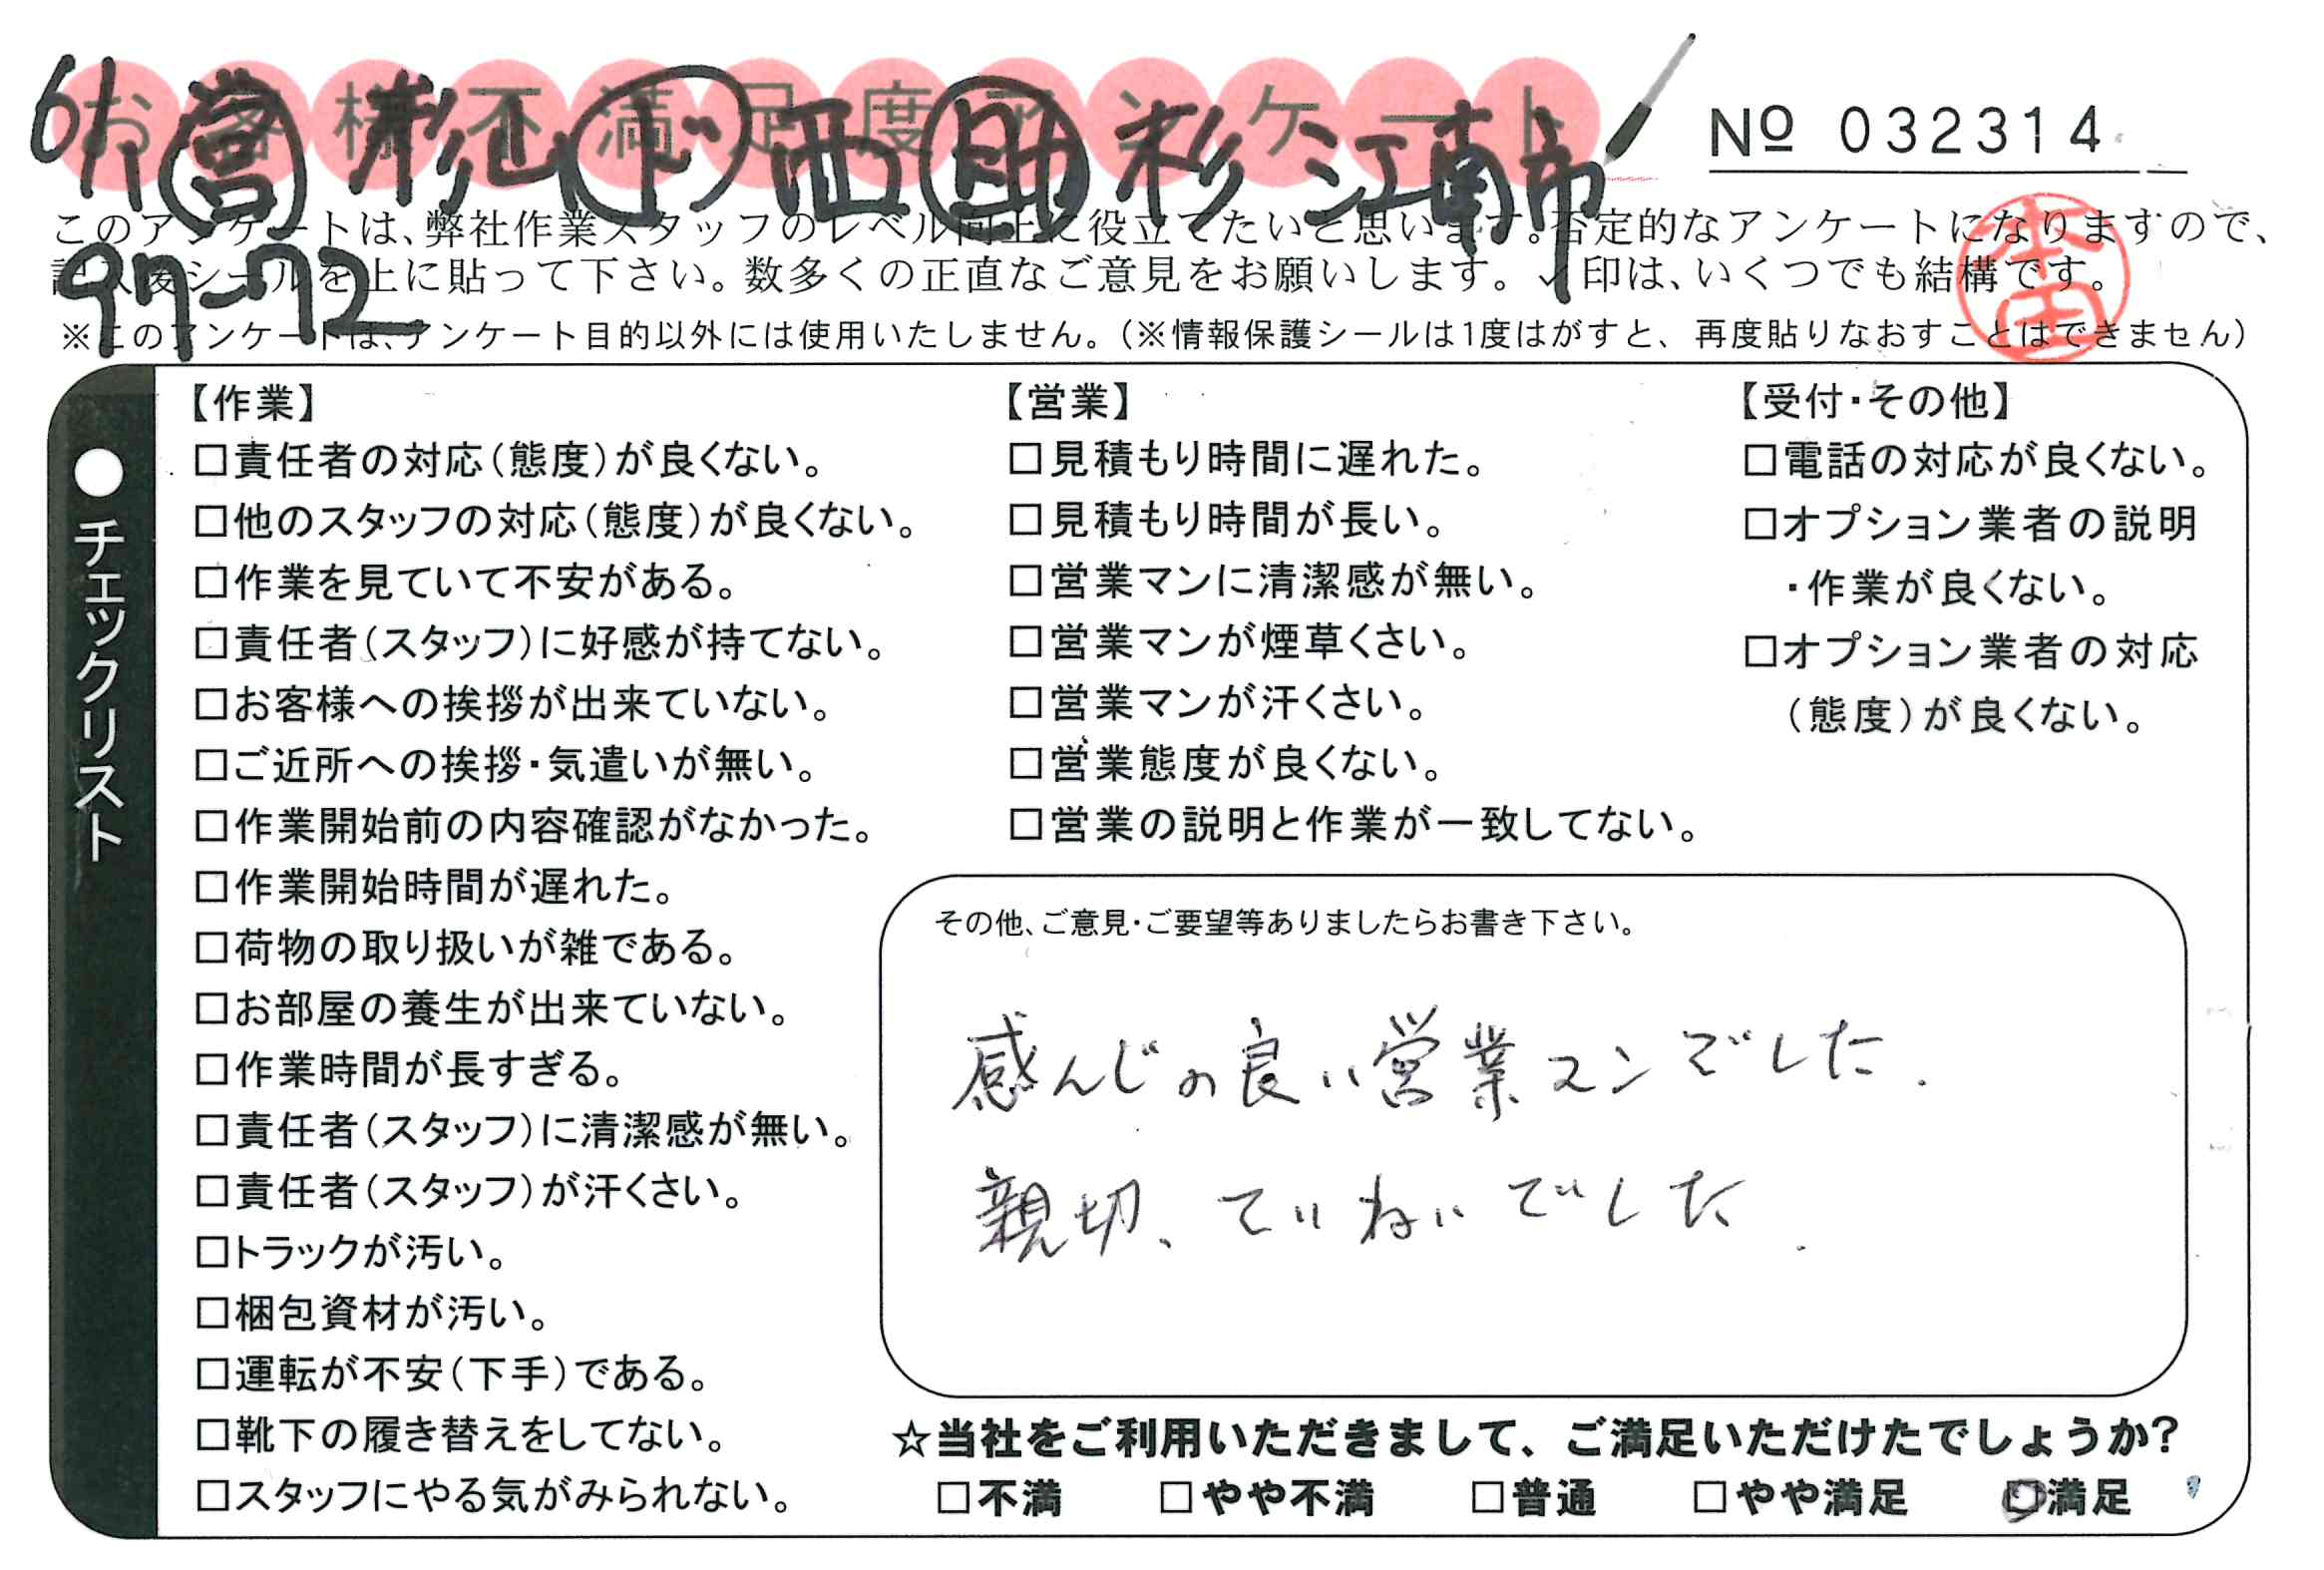 お客様不満足度アンケート
6/1 営 杉山 ド 西 助 杉 江南市
97-72
Nº 032314
このアンケートは、弊社作業スタッフのレベル向上に役立てたいと思います。否定的なアンケートになりますので、
記入後シールを上に貼って下さい。数多くの正直なご意見をお願いします。✓印は、いくつでも結構です。
※このアンケートは、アンケート目的以外には使用いたしません。(※情報保護シールは1度はがすと、再度貼りなおすことはできません)
本田
●チェックリスト
【作業】
□責任者の対応(態度)が良くない。
□他のスタッフの対応(態度)が良くない。
□作業を見ていて不安がある。
□責任者(スタッフ)に好感が持てない。
□お客様への挨拶が出来ていない。
□ご近所への挨拶・気遣いが無い。
□作業開始前の内容確認がなかった。
□作業開始時間が遅れた。
□荷物の取り扱いが雑である。
□お部屋の養生が出来ていない。
□作業時間が長すぎる。
□責任者(スタッフ)に清潔感が無い。
□責任者(スタッフ)が汗くさい。
□トラックが汚い。
□梱包資材が汚い。
□運転が不安(下手)である。
□靴下の履き替えをしてない。
□スタッフにやる気がみられない。
【営業】
□見積もり時間に遅れた。
□見積もり時間が長い。
□営業マンに清潔感が無い。
□営業マンが煙草くさい。
□営業マンが汗くさい。
□営業態度が良くない。
□営業の説明と作業が一致してない。
【受付・その他】
□電話の対応が良くない。
□オプション業者の説明
・作業が良くない。
□オプション業者の対応
(態度)が良くない。
その他、ご意見・ご要望等ありましたらお書き下さい。
感んじの良い営業マンでした.
親切、ていねいでした.
☆当社をご利用いただきまして、ご満足いただけたでしょうか?
□不満 □やや不満 □普通 □やや満足 □満足